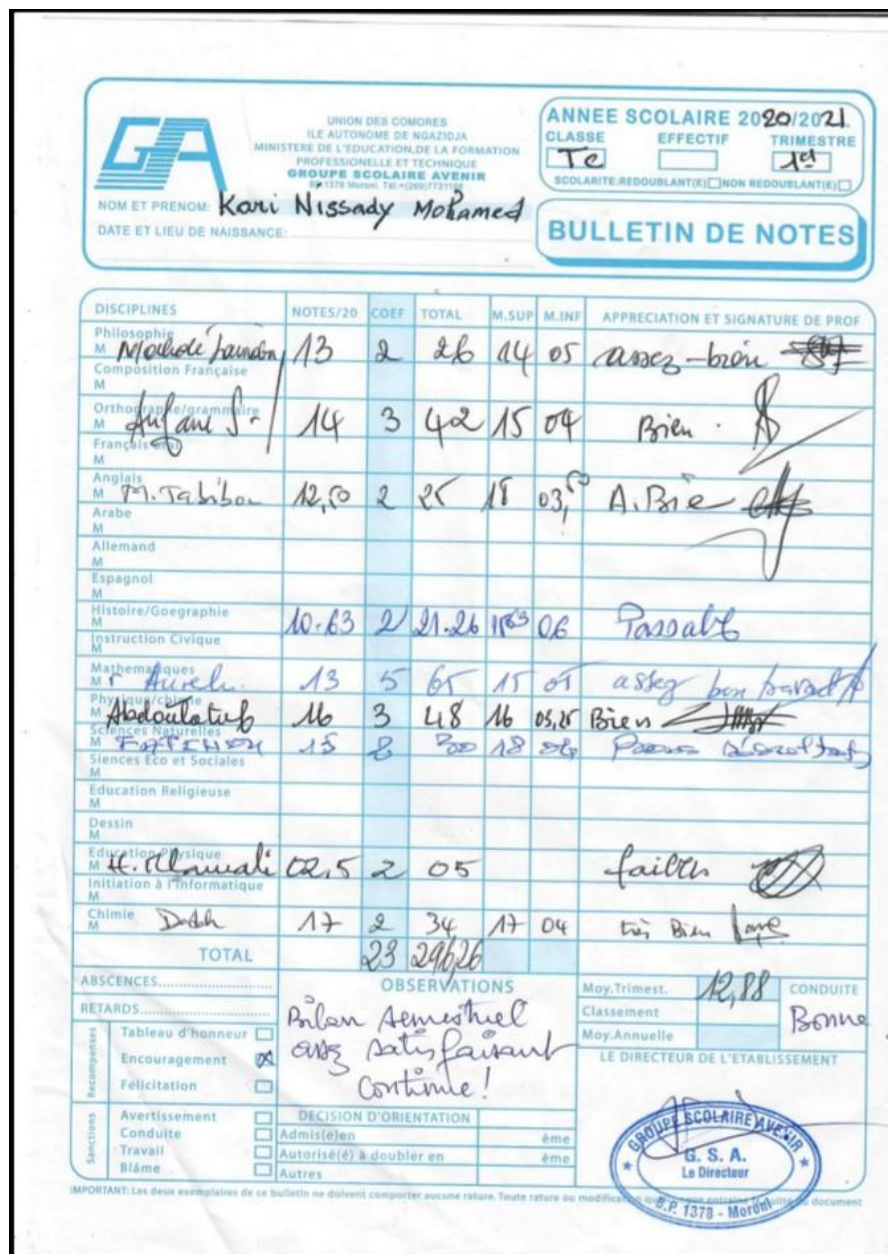 GA
UNION DES COMORES
ILE AUTONOME DE NGAZIDJA
MINISTERE DE L'EDUCATION,DE LA FORMATION
PROFESSIONELLE ET TECHNIQUE
GROUPE SCOLAIRE AVENIR
ANNEE SCOLAIRE 2020/2021
CLASSE EFFECTIF TRIMESTRE
Te 1er
SCOLARITE:REDOUBLANT(E) NON REDOUBLANT(E)
NOM ET PRENOM: Kari Nissady Mohamed
DATE ET LIEU DE NAISSANCE:
BULLETIN DE NOTES
DISCIPLINES NOTES/20 COEF TOTAL M.SUP M.INF APPRECIATION ET SIGNATURE DE PROF
Philosophie
M 13 2 26 14 05 assez-bien
Composition Française
M
Orthographe/grammaire
M 14 3 42 15 04 Bien
Français
M
Anglais
M M.Tabibou 12,50 2 25 18 03,50 A.Bie
Arabe
M
Allemand
M
Espagnol
M
Histoire/Goegraphie
10.63 2 21.26 06 Passable
Instruction Civique
M
Mathematiques
M 13 5 65 15 05 assez bon travail
Physique/chimie
Abdoulatuf 16 3 48 16 05,25 Bien
Sciences Naturelles
M 15 2 30 18
Siences Eco et Sociales
M
Education Religieuse
M
Dessin
M
Education Physique
M 02,5 2 05 faible
Initiation à l'Informatique
M
Chimie
M 17 2 34 17 04 très Bien
TOTAL 23 296,26
ABSCENCES
RETARDS
Recompenses
Tableau d'honneur
Encouragement X
Félicitation
Sanctions
Avertissement
Conduite
Travail
Bláme
OBSERVATIONS
Bilan semestriel
assez satisfaisant
Continue!
DECISION D'ORIENTATION
Admis(e)en ème
Autorisé(é) à doubler en ème
Autres
Moy.Trimest. 12,88
Classement
Moy.Annuelle
CONDUITE
Bonne
LE DIRECTEUR DE L'ETABLISSEMENT
GROUPE SCOLAIRE AVENIR
G. S. A.
Le Directeur
B.P. 1378 - Moroni
IMPORTANT: Les deux exemplaires de ce bulletin ne doivent comporter aucune rature. Toute rature ou modification document